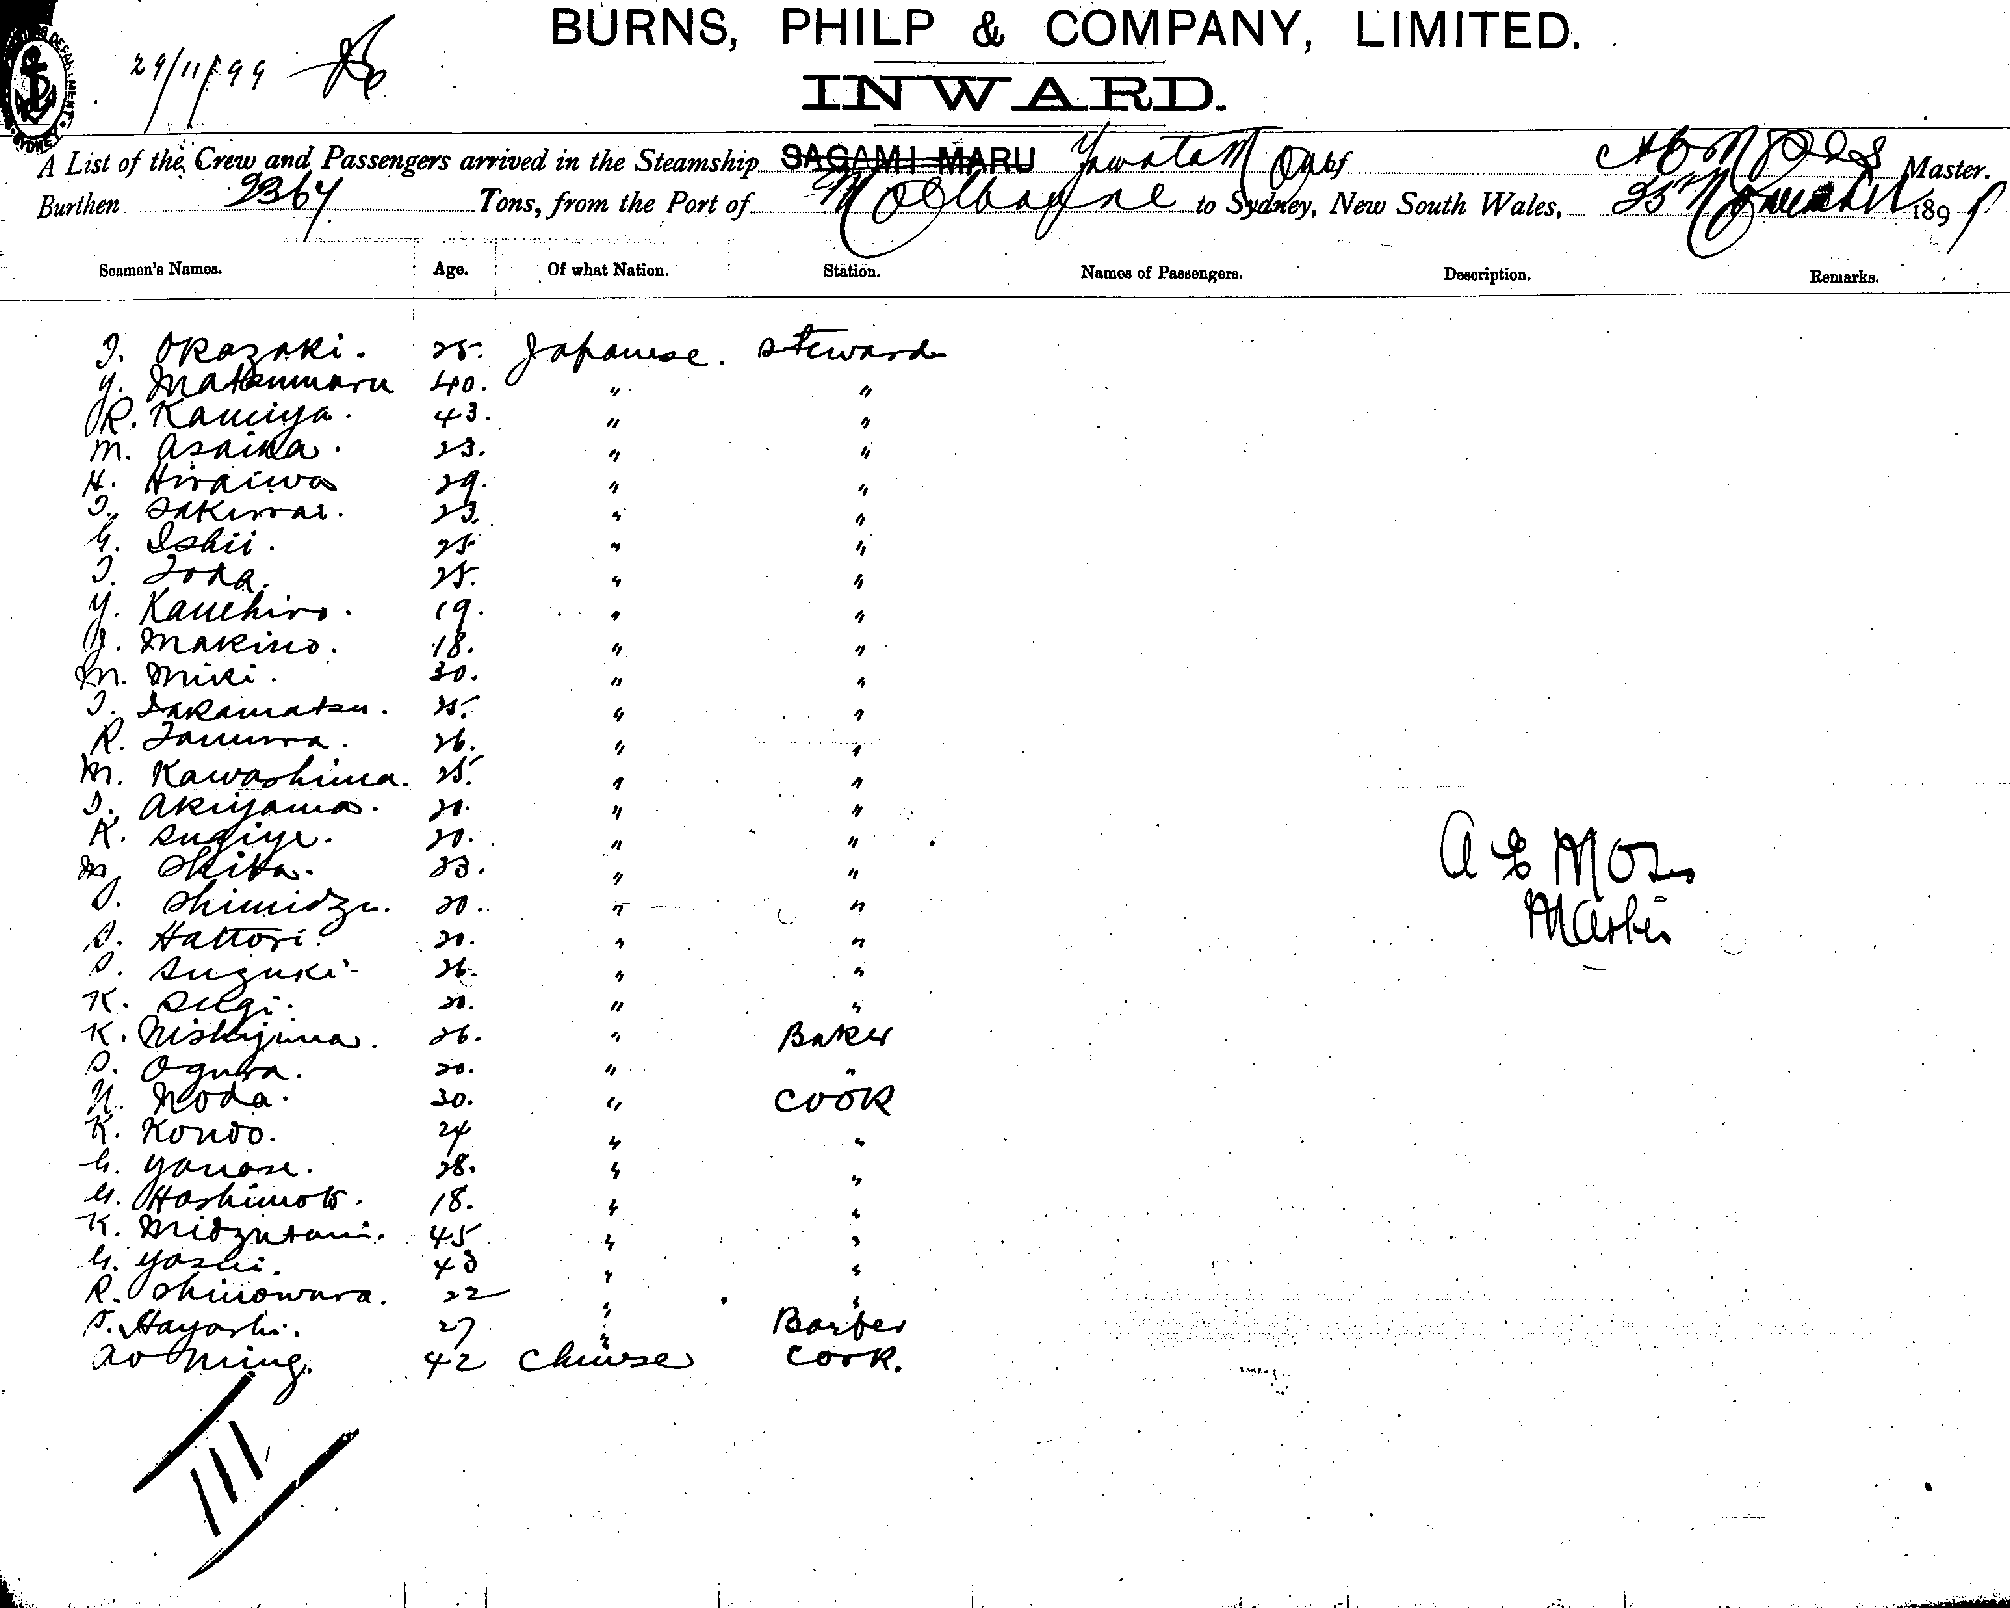 29/11/99
BURNS, PHILP & COMPANY, LIMITED.
INWARD.
A List of the Crew and Passengers arrived in the Steamship SAGAMI MARU Yawata M Master.
Burthen 2364 Tons, from the Port of Melbourne to Sydney, New South Wales, 25 November 1899
Seamen's Names. Age. Of what Nation. Station. Names of Passengers. Description. Remarks.
I. Okazaki. 25. Japanese. Steward
Y. Matsumaru 40. " "
R. Kamiya. 43. " "
M. Asaina. 23. " "
H. Hiraiwa 29. " "
I. Sakurai. 23. " "
G. Ishii. 25. " "
I. Toda. 25. " "
Y. Kanehiro. 19. " "
Makino. 18. " "
M. Miki. 30. " "
I. Takamatsu. 25. " "
R. Tamura. 26. " "
M. Kawashima. 25. " "
I. Akiyama. 20. " "
K. Sugiye. 20. " "
M. Shiba. 23. " "
S. Shimidzu. 20. " "
S. Hattori. 20. " "
S. Suzuki. 26. " "
K. Sugi. 20. " "
K. Nishijima. 26. " Baker
S. Ogura. 20. " "
N. Noda. 30. " Cook
K. Kondo. 24 " "
G. Yanase. 28. " "
G. Hashimoto. 18. " "
K. Midzutani. 45 " "
G. Yoshi. 43 " "
R. Shinowara. 22 " "
S. Hayashi. 27 " Barber
Ao Ming. 42 Chinese Cook.
A E Moses
Master
III